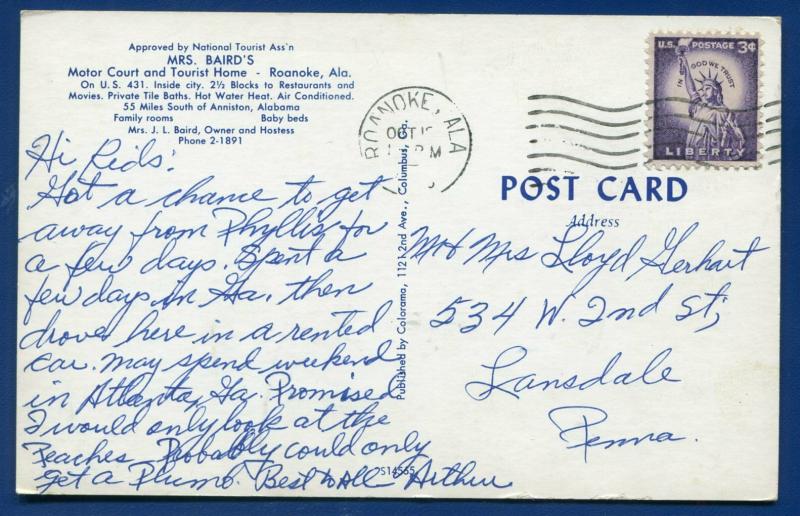 Approved by National Tourist Ass'n
MRS. BAIRD'S
Motor Court and Tourist Home - Roanoke, Ala.
On U.S. 431. Inside city. 2½ Blocks to Restaurants and
Movies. Private Tile Baths. Hot Water Heat. Air Conditioned.
55 Miles South of Anniston, Alabama
Family rooms Baby beds
Mrs. J. L. Baird, Owner and Hostess
Phone 2-1891
Hi Kids:
Got a chance to get
away from Phyllis for
a few days. Spent a
few days in Ga. then
drove here in a rented
car. May spend weekend
in Atlanta, Ga. Promised
I would only look at the
Peaches. Probably could only
get a Plumb. Best to All Arthur
Published by Colorama, 112½ 2nd Ave., Columbus, Ga.
S14565
ROANOKE, ALA
OCT
PM
U.S. POSTAGE 3¢
IN GOD WE TRUST
LIBERTY
POST CARD
Address
Mr Mrs Lloyd Gerhart
534 W. 2nd St,
Lansdale
Penna.